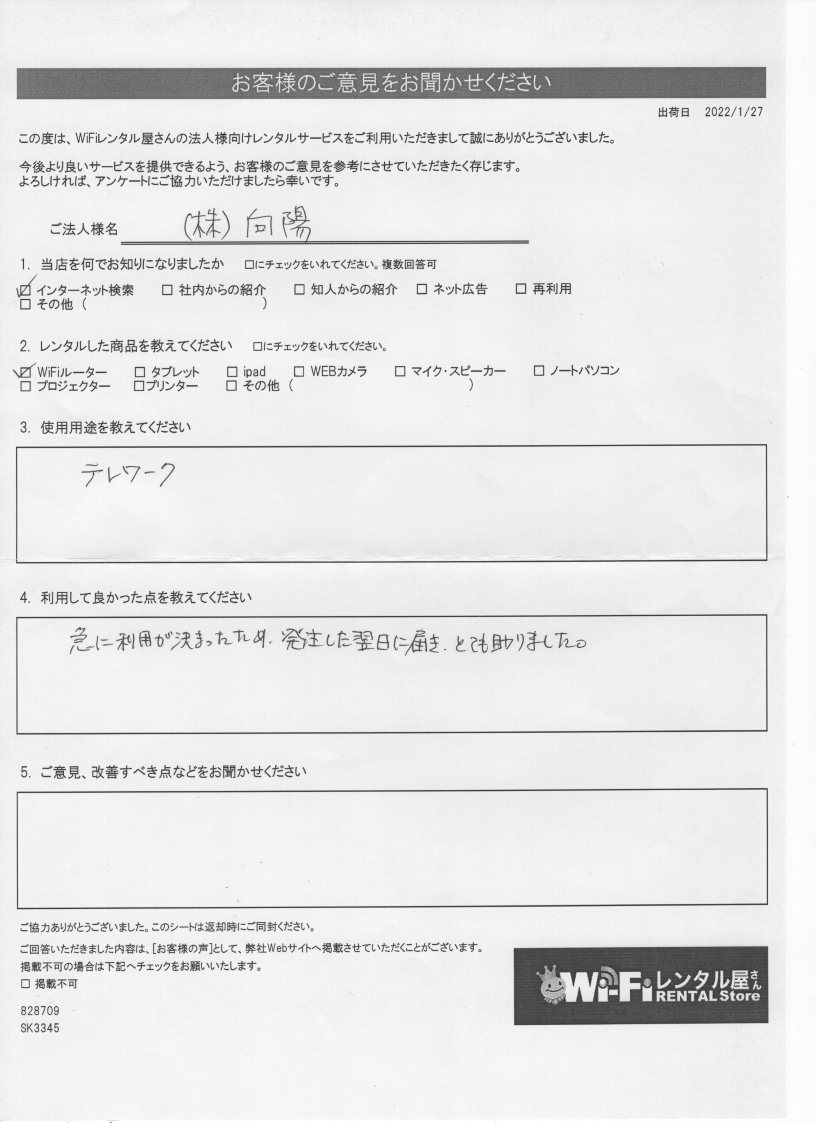 お客様のご意見をお聞かせください
出荷日 2022/1/27
この度は、WiFiレンタル屋さんの法人様向けレンタルサービスをご利用いただきまして誠にありがとうございました。
今後より良いサービスを提供できるよう、お客様のご意見を参考にさせていただきたく存じます。
よろしければ、アンケートにご協力いただけましたら幸いです。
ご法人様名 (株) 向陽
1. 当店を何でお知りになりましたか □にチェックをいれてください。複数回答可
☑ インターネット検索 □ 社内からの紹介 □ 知人からの紹介 □ ネット広告 □ 再利用
□ その他 ( )
2. レンタルした商品を教えてください □にチェックをいれてください。
☑ WiFiルーター □ タブレット □ ipad □ WEBカメラ □ マイク・スピーカー □ ノートパソコン
□ プロジェクター □プリンター □ その他 ( )
3. 使用用途を教えてください
テレワーク
4. 利用して良かった点を教えてください
急に利用が決まったため、発注した翌日に届き、とても助りました。
5. ご意見、改善すべき点などをお聞かせください
ご協力ありがとうございました。このシートは返却時にご同封ください。
ご回答いただきました内容は、[お客様の声]として、弊社Webサイトへ掲載させていただくことがございます。
掲載不可の場合は下記へチェックをお願いいたします。
□ 掲載不可
828709
SK3345
Wi-Fi レンタル屋さん
RENTAL Store